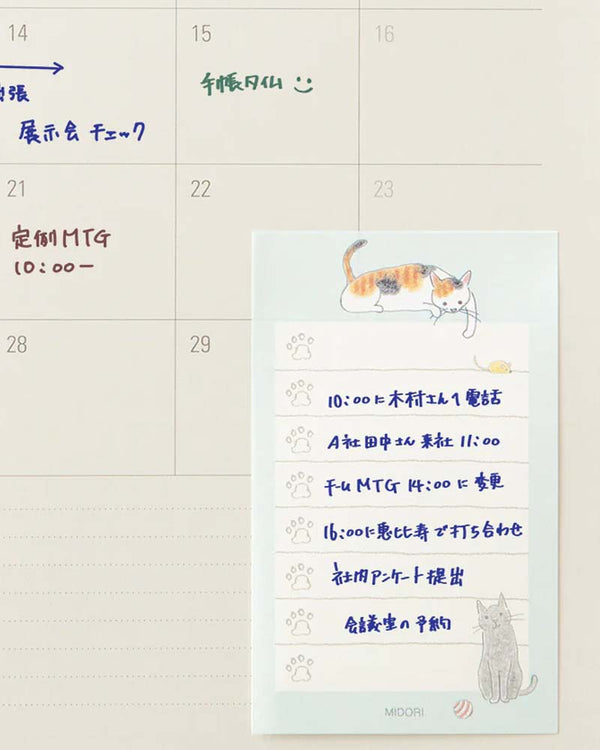 14
15
16
張
展示会 チェック
手帳タイム
21
22
23
定例MTG
10:00ー
28
29
10:00に木村さんへ電話
A社田中さん来社 11:00
チームMTG 14:00に変更
16:00に恵比寿で打ち合わせ
社内アンケート提出
会議室の予約
MIDORI